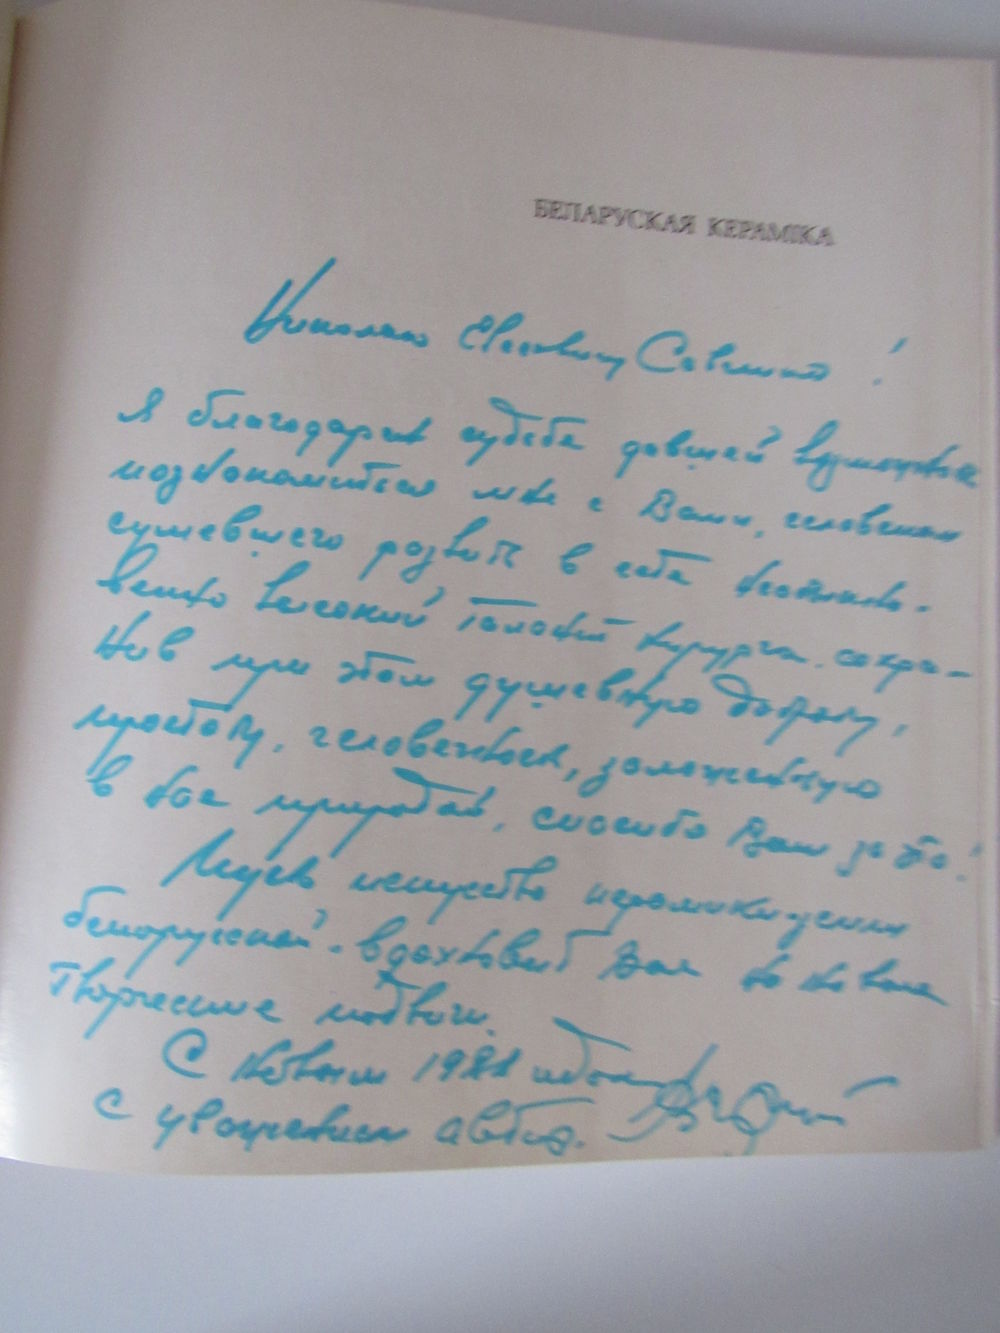 БЕЛАРУСКАЯ КЕРАМІКА
Николаю Евсеевичу Савченко!
Я благодарен судьбе давшей возможность
познакомиться мне с Вами, человеком
сумевшего развить в себе
высокий талант хирурга. сохра-
нив при этом душевную доброту,
простоту, человечность, заложенную
в нас природой, спасибо Вам за то!
Пусть искусство керамики земли
белорусской. вдохновит Вас на новые
творческие подвиги.
С новым 1981 годом
с уважением автор.